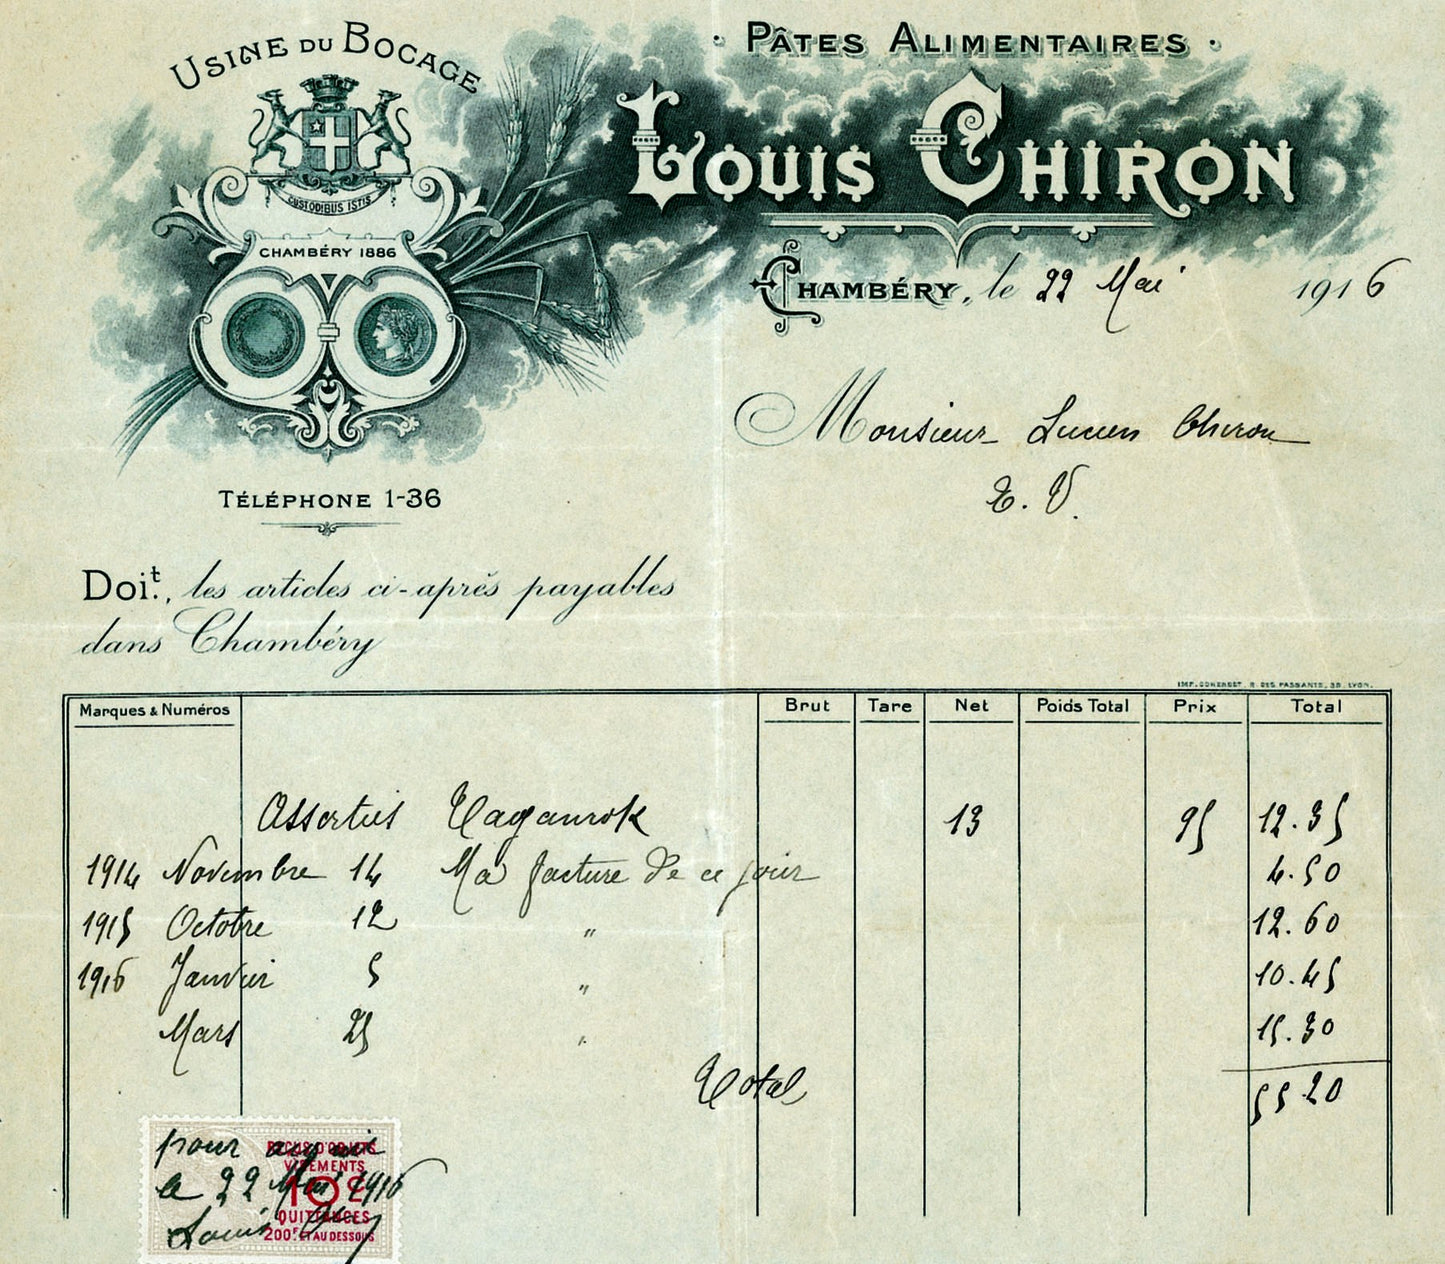 USINE DU BOCAGE
· PÂTES ALIMENTAIRES ·
LOUIS CHIRON
CUSTODIBUS ISTIS
CHAMBÉRY 1886
CHAMBÉRY, le 22 Mai 1916
Monsieur Lucien Chiron
E. V.
TÉLÉPHONE 1-36
Doit., les articles ci-après payables
dans Chambéry
IMP. R. DES PASSANTS, LYON.
Marques & Numéros Brut Tare Net Poids Total Prix Total
Assortis Taganrok 13 95 12.35
1914 Novembre 14 Ma facture de ce jour 4.50
1915 Octobre 12 " 12.60
1916 Janvier 5 " 10.45
Mars 25 " 15.30
Total 55.20
pour acquit
le 22 Mai 1916
Louis
REÇUS D'OBJETS
VISEMENTS
10c
QUITTANCES
200F ET AU DESSOUS